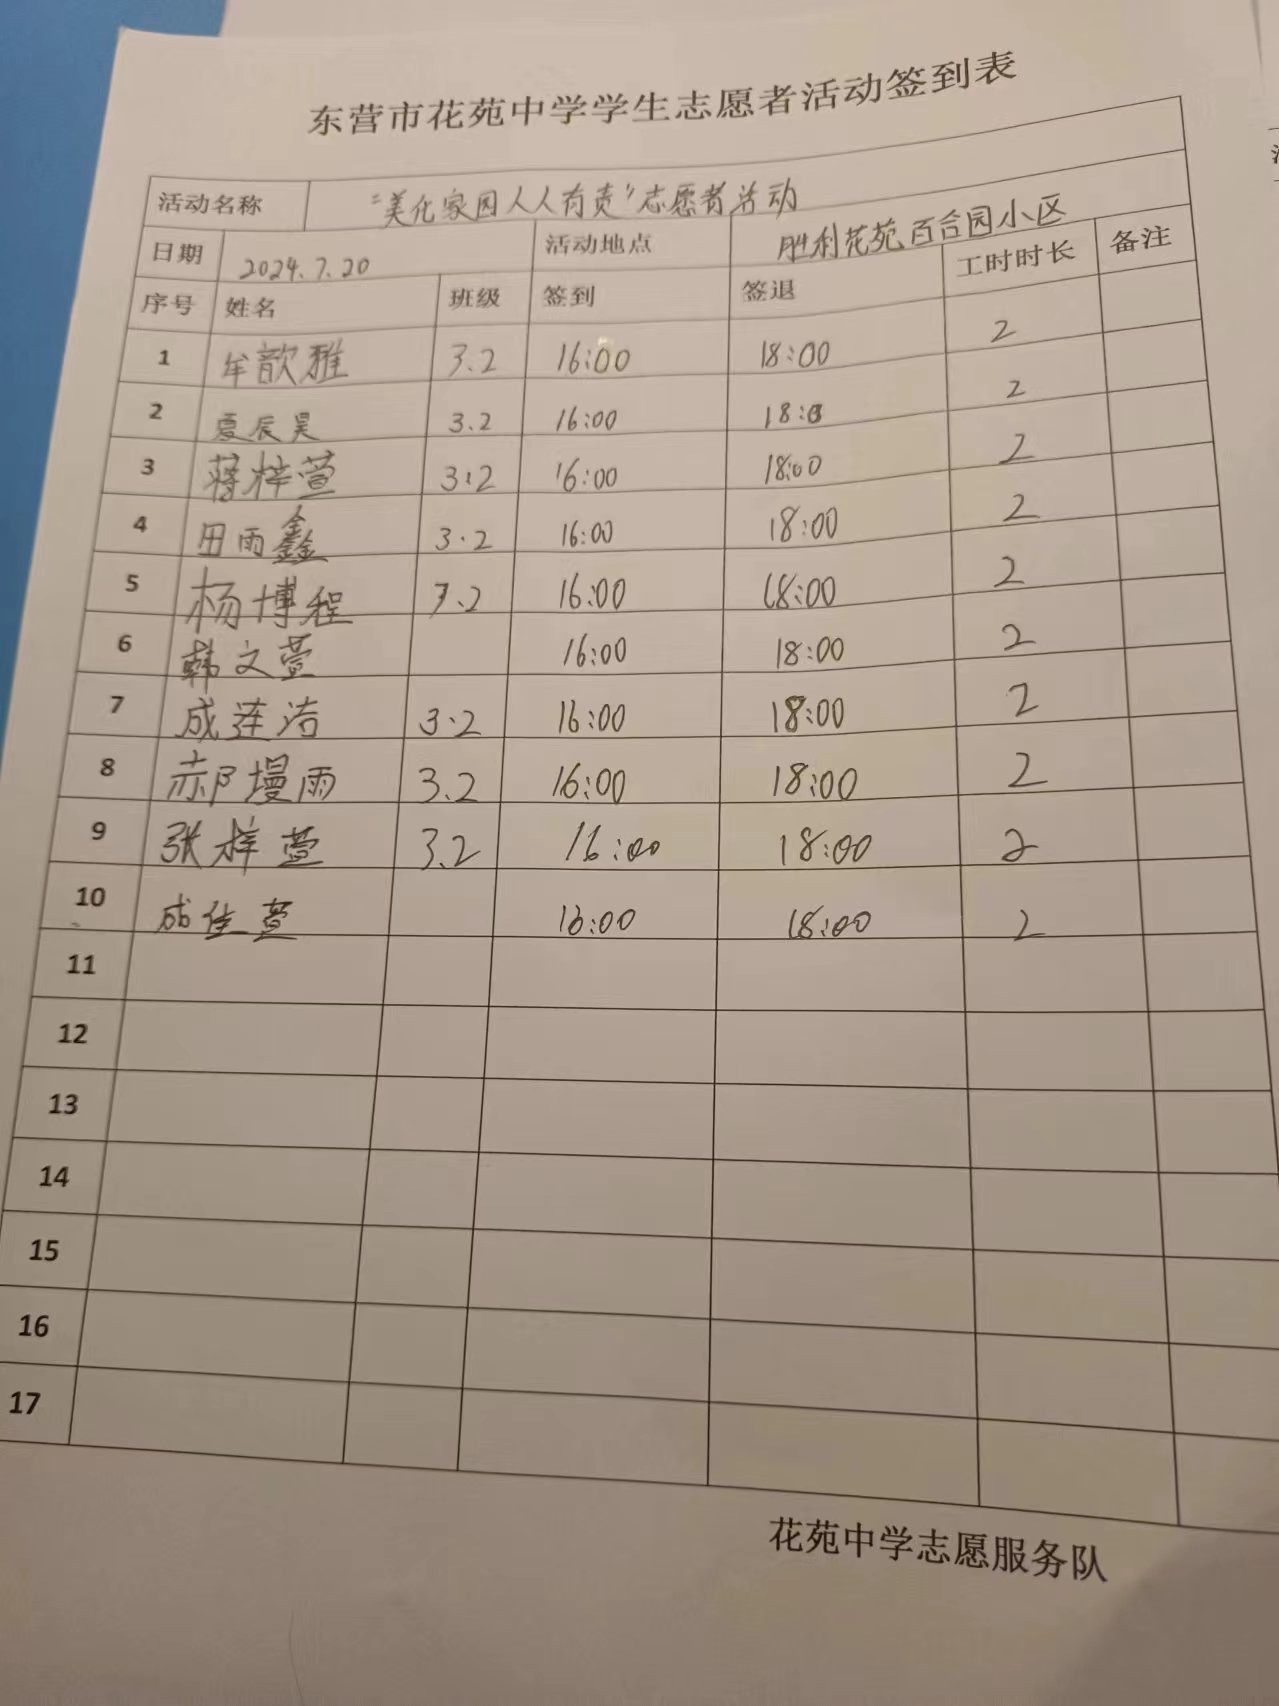 东营市花苑中学学生志愿者活动签到表
活动名称 "美化家园人人有责"志愿者活动
日期 2024.7.20 活动地点 胜利花苑百合园小区
序号 姓名 班级 签到 签退 工时时长 备注
1 牟歆雅 3.2 16:00 18:00 2
2 夏辰昊 3.2 16:00 18:0 2
3 蒋梓萱 3.2 16:00 18:00 2
4 田雨鑫 3.2 16:00 18:00 2
5 杨博程 3.2 16:00 18:00 2
6 韩文萱 16:00 18:00 2
7 成连洁 3.2 16:00 18:00 2
8 郝墁雨 3.2 16:00 18:00 2
9 张梓萱 3.2 16:00 18:00 2
10 成佳萱 16:00 18:00 2
11
12
13
14
15
16
17
花苑中学志愿服务队